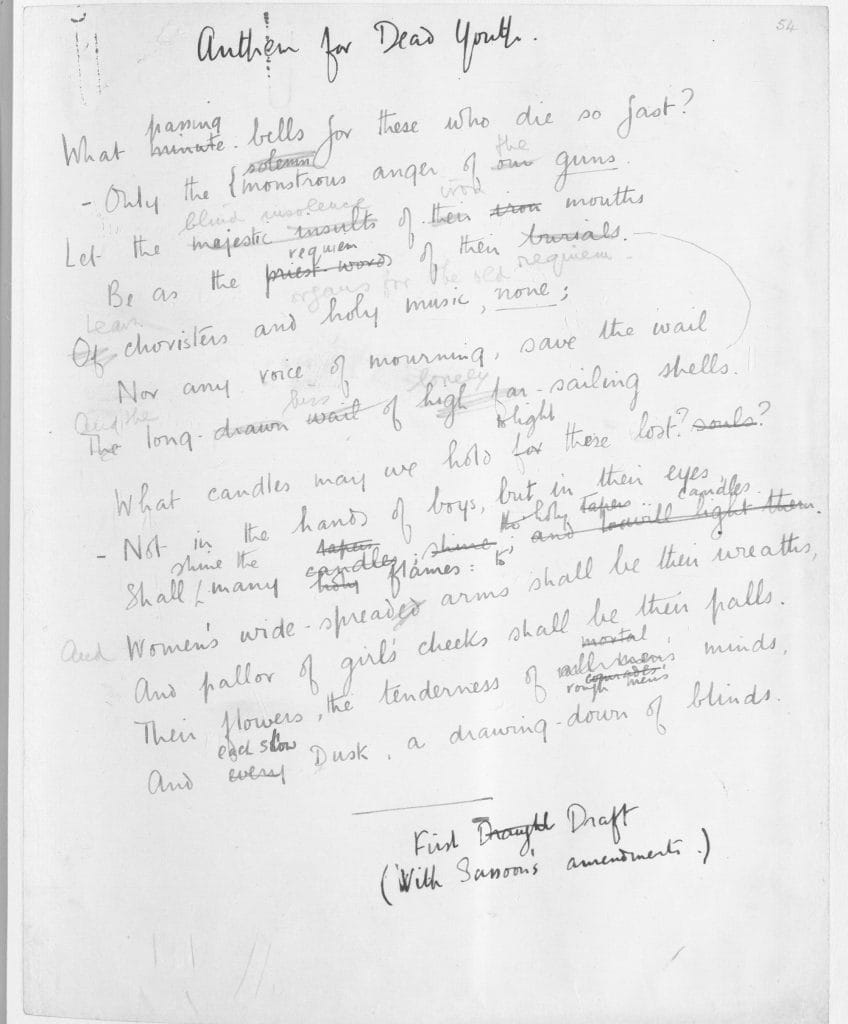 54
Anthem for Dead Youth.
passing
What minute bells for these who die so fast?
solemn the
- Only the { monstrous anger of our guns.
blind insolence iron
Let the majestic insults of their iron mouths
requiem
Be as the priest-words of their burials.
organs for the old requiem.
Learn
Of choristers and holy music, none;
Nor any voice of mourning, save the wail
And the hiss lonely
The long-drawn wail of high far-sailing shells.
light
What candles may we hold for these lost? souls?
- Not in the hands of boys, but in their eyes
shine the tapers holy tapers candles.
Shall many candles shine; and will light them.
holy flames: to
Women's wide-spreaded arms shall be their wreaths,
And And pallor of girl's cheeks shall be their palls.
mortal
Their flowers, the tenderness of all men's minds,
comrades'
rough men's
each slow
And every Dusk, a drawing-down of blinds.
First Draught Draft
(With Sassoon's amendments.)